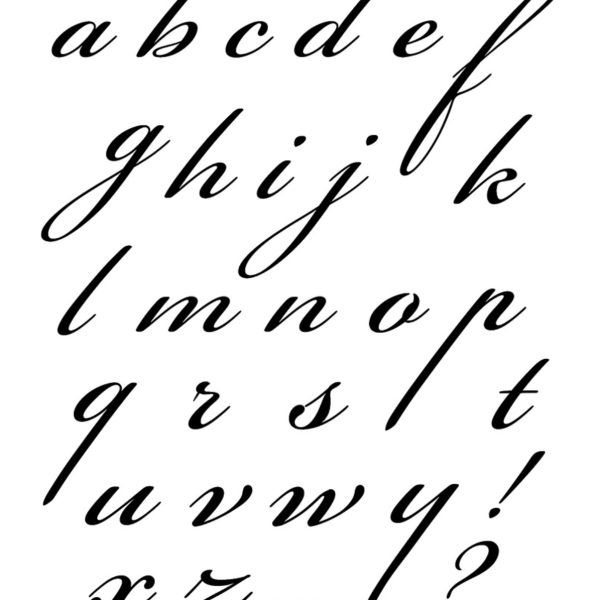 a b c d e f
g h i j k
l m n o p
q r s t
u v w y !
x z ?